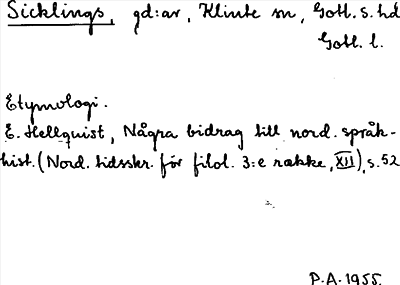 Sicklings, gd:ar, Klinte sn, Gotl. s. hd
Gotl. l.
Etymologi.
E. Hellquist, Några bidrag till nord. språk-
hist. (Nord. tidsskr. för filol. 3:e række, XII), s. 52
P.A. 1955.